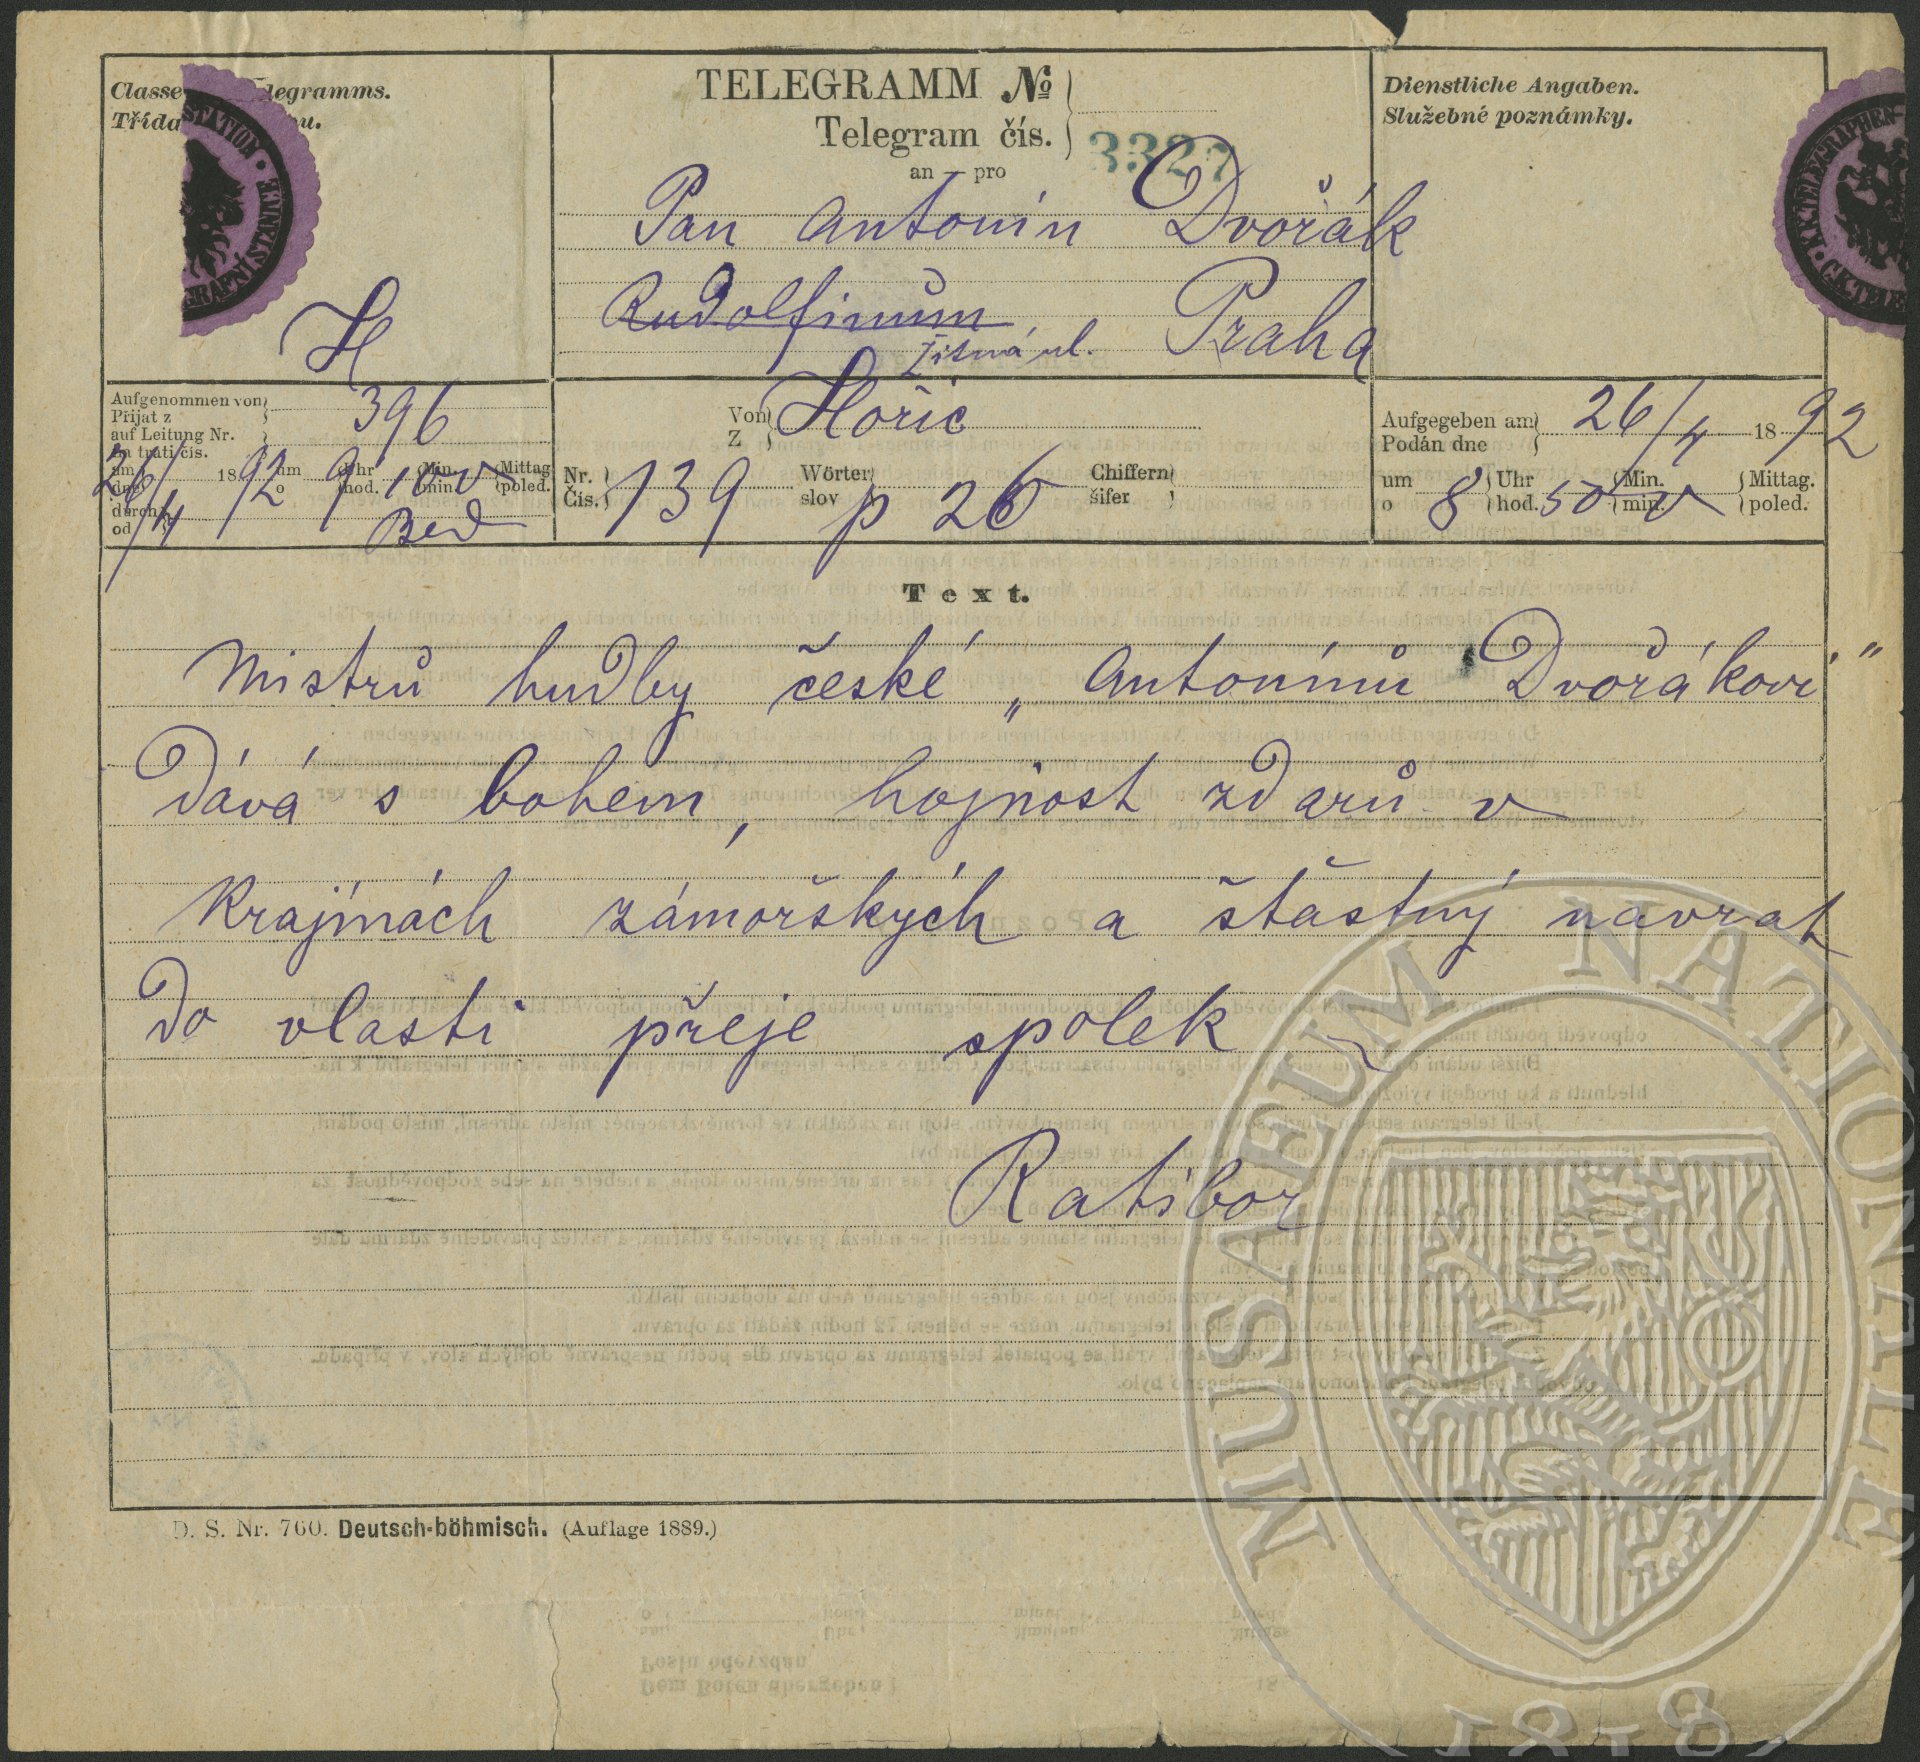 Classe legramms.
Třída nu.
STATION
H
TELEGRAMM No
Telegram čís.
3327
an — pro
Pan Antonín Dvořák
Rudolfinum
Žitná ul. Praha
Dienstliche Angaben.
Služebné poznámky.
K.K. TELEGRAPHEN-
Aufgenommen von
Přijat z
auf Leitung Nr.
na trati čís.
396
26/4 1892 um 9 Uhr 10 v Min. Mittag
dne o hod. min. poled.
durch
od
Bed
Von
Z
Hořic
Nr.
Čís.
139
Wörter
slov
p 26
Chiffern
šifer
Aufgegeben am
Podán dne
26/4 1892
um 8 Uhr 50 v Min. Mittag.
o hod. min. poled.
Text.
Mistrů hudby české „Antonínu Dvořákovi"
dává s bohem, hojnost zdarů v
Krajínách zámořských a štastný návrat
do vlasti přeje spolek
Ratibor
D. S. Nr. 760. Deutsch-böhmisch. (Auflage 1889.)
MUSAEUM NATIONALE
1818